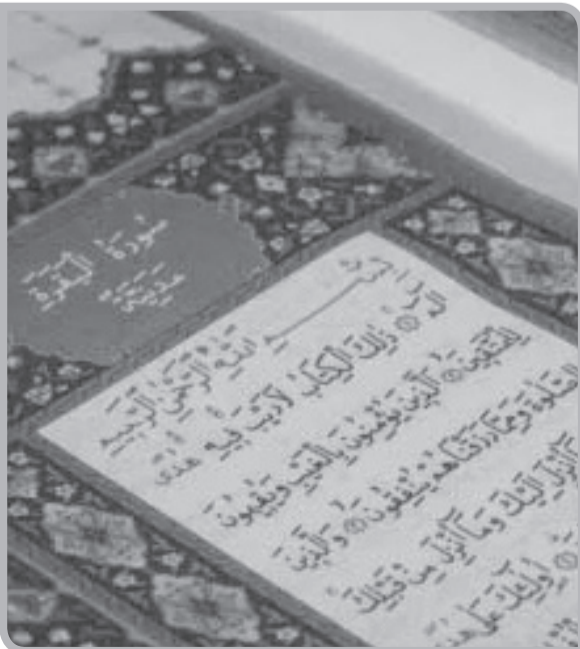 سُورَةُ الْبَقَرَةِ
مَدَنِيَّة
بِسْــــــمِ اللّٰهِ الرَّحْمٰنِ الرَّحِيمِ
الٓمٓ ﴿١﴾ ذٰلِكَ الْكِتَابُ لَا رَيْبَ فِيهِ هُدًى
لِلْمُتَّقِينَ ﴿٢﴾ الَّذِينَ يُؤْمِنُونَ بِالْغَيْبِ وَيُقِيمُونَ
الصَّلٰوةَ وَمِمَّا رَزَقْنَاهُمْ يُنْفِقُونَ ﴿٣﴾ وَالَّذِينَ
أُنْزِلَ إِلَيْكَ وَمَا أُنْزِلَ مِنْ قَبْلِكَ
أُولٰئِكَ عَلٰى هُدًى